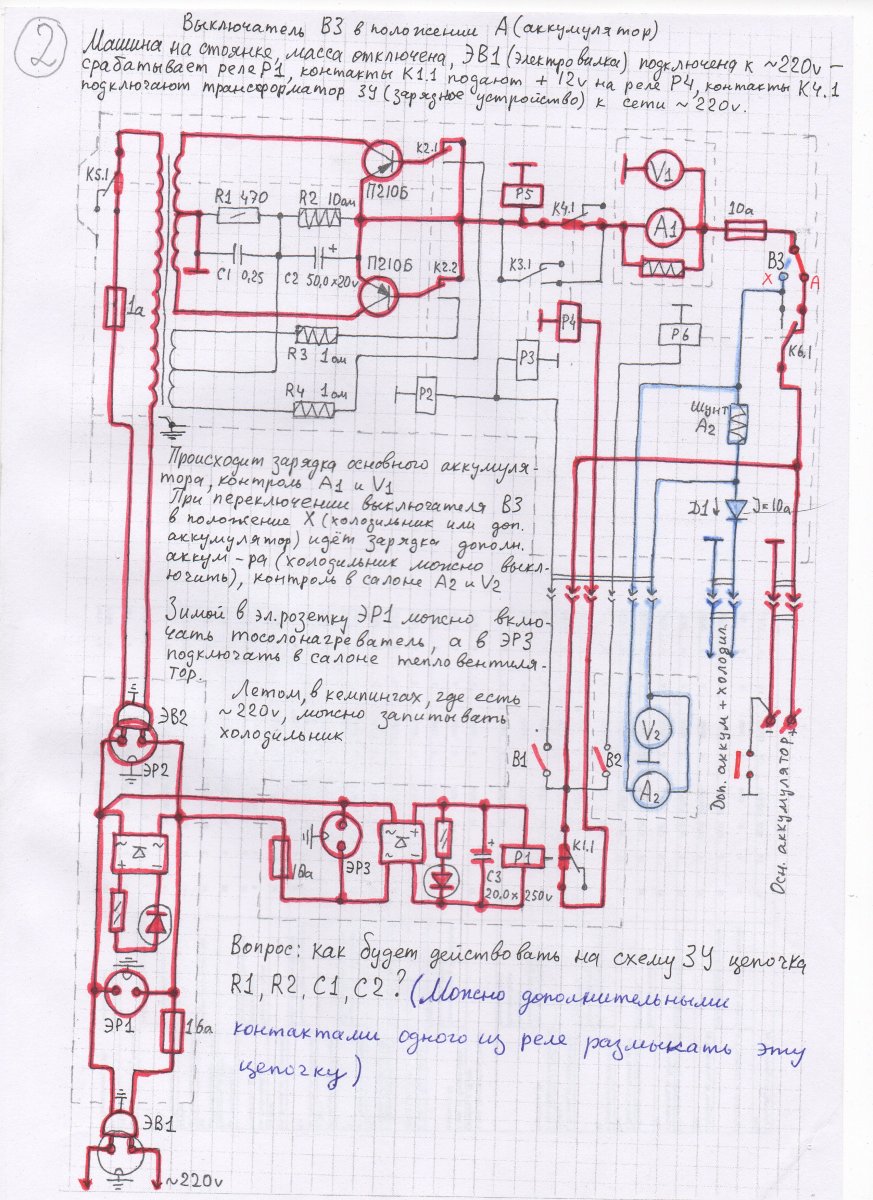 2
Выключатель В3 в положении А (аккумулятор)
Машина на стоянке, масса отключена, ЭВ1 (электровилка) подключена к ~220v –
срабатывает реле Р1, контакты К1.1 подают + 12v на реле Р4, контакты К4.1
подключают трансформатор ЗУ (зарядное устройство) к сети ~220v.
К5.1
1а
R1 470
R2 10ом
C1 0,25
C2 50,0×20v
+
П210Б
К2.1
П210Б
К2.2
R3 1ом
R4 1ом
Р2
Р3
Р5
К4.1
К3.1
Р4
Р6
V1
А1
10а
В3
Х
А
К6.1
Шунт
А2
D1
J=10а
Происходит зарядка основного аккумуля-
тора, контроль А1 и V1
При переключении выключателя В3
в положение Х (холодильник или доп.
аккумулятор) идёт зарядка дополн.
аккум-ра (холодильник можно выкл-
ючить), контроль в салоне А2 и V2
Зимой в эл.розетку ЭР1 можно вклю-
чать тосолонагреватель, а в ЭР3
подключать в салоне тепловентиля-
тор.
Летом, в кемпингах, где есть
~220v, можно запитывать
холодильник
ЭВ2
ЭР2
В1
В2
V2
А2
Доп. аккум + холодил.
Осн. аккумулятор
–
+
~ ~
+ –
10а
ЭР3
~ +
~ –
+
C3
20,0×250v
Р1
К1.1
ЭР1
16а
ЭВ1
~220v
Вопрос: как будет действовать на схему ЗУ цепочка
R1, R2, C1, C2? (Можно дополнительными
контактами одного из реле размыкать эту
цепочку)